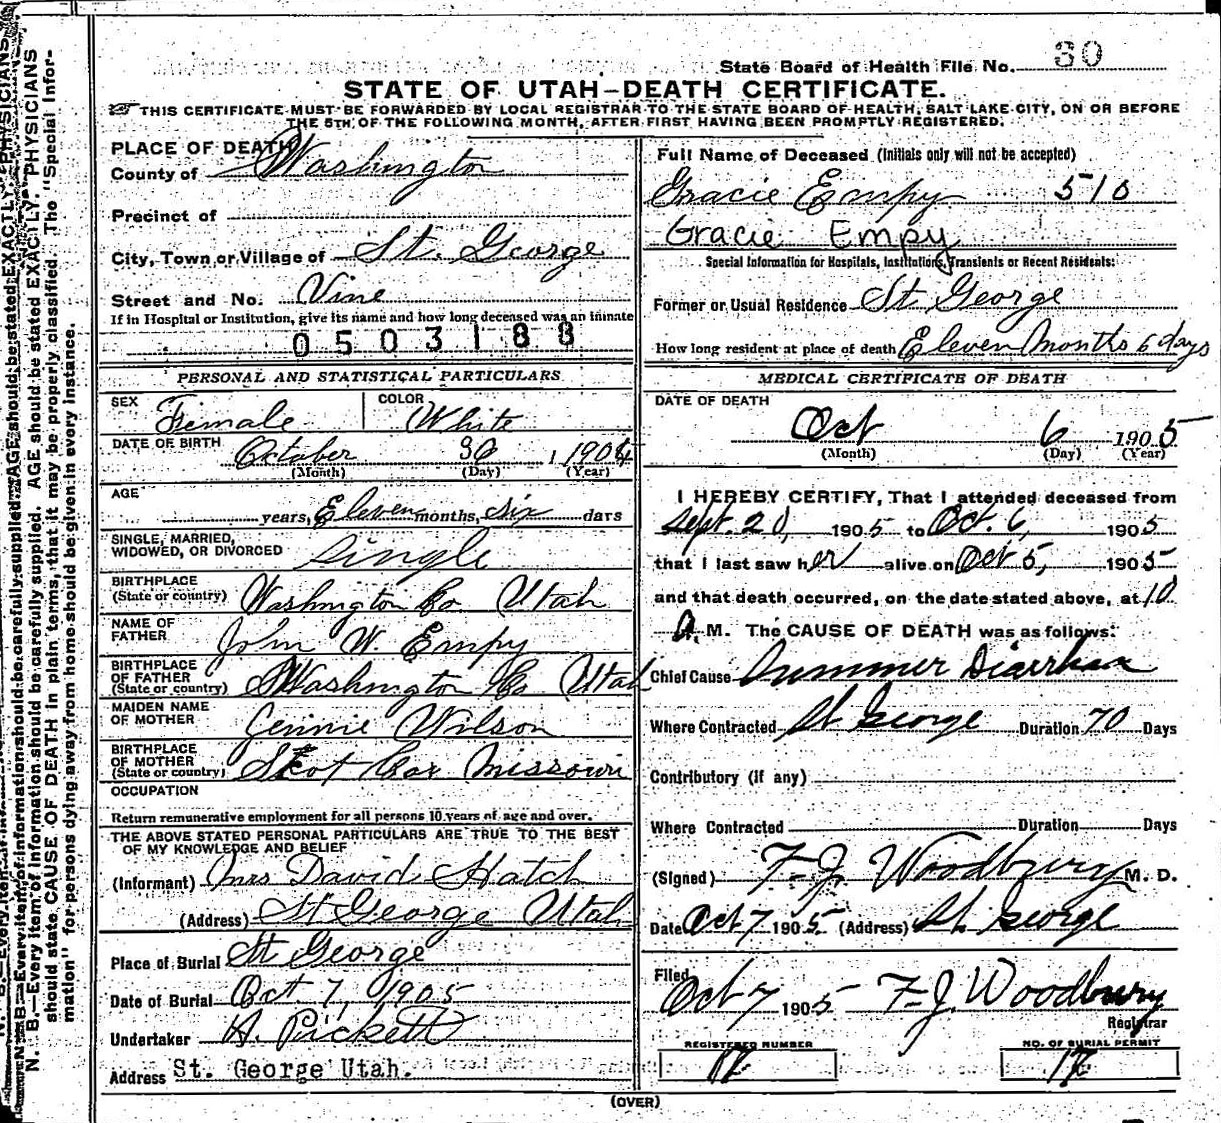 State Board of Health File No. 30
STATE OF UTAH—DEATH CERTIFICATE.
THIS CERTIFICATE MUST BE FORWARDED BY LOCAL REGISTRAR TO THE STATE BOARD OF HEALTH, SALT LAKE CITY, ON OR BEFORE
THE 5TH OF THE FOLLOWING MONTH, AFTER FIRST HAVING BEEN PROMPTLY REGISTERED.
PLACE OF DEATH
County of Washington
Precinct of
City, Town or Village of St. George
Street and No. Vine
If in Hospital or Institution, give its name and how long deceased was an inmate
0503188
PERSONAL AND STATISTICAL PARTICULARS
SEX Female COLOR White
DATE OF BIRTH October 30, 1904
(Month) (Day) (Year)
AGE
years, Eleven months, six days
SINGLE, MARRIED,
WIDOWED, OR DIVORCED Single
BIRTHPLACE
(State or country) Washington Co Utah
NAME OF
FATHER John W. Empy
BIRTHPLACE
OF FATHER
(State or country) Washington Co Utah
MAIDEN NAME
OF MOTHER Jennie Wilson
BIRTHPLACE
OF MOTHER
(State or country) Missouri
OCCUPATION
Return remunerative employment for all persons 10 years of age and over.
THE ABOVE STATED PERSONAL PARTICULARS ARE TRUE TO THE BEST
OF MY KNOWLEDGE AND BELIEF
(Informant) Mrs David Hatch
(Address) St George Utah
Place of Burial St George
Date of Burial Oct. 7, 1905
Undertaker A. Pickett
Address St. George Utah.
Full Name of Deceased (Initials only will not be accepted)
Gracie Empy 510
Gracie Empy
Special Information for Hospitals, Institutions, Transients or Recent Residents:
Former or Usual Residence St George
How long resident at place of death Eleven Months 6 days
MEDICAL CERTIFICATE OF DEATH
DATE OF DEATH
Oct 6 1905
(Month) (Day) (Year)
I HEREBY CERTIFY, That I attended deceased from
Sept. 20, 1905 to Oct. 6, 1905
that I last saw her alive on Oct 5, 1905
and that death occurred, on the date stated above, at 10
A. M. The CAUSE OF DEATH was as follows:
Chief Cause Summer Diarrhea
Where Contracted St George Duration 70 Days
Contributory (if any)
Where Contracted Duration Days
(Signed) F. J. Woodbury M. D.
Date Oct 7 1905 (Address) St. George
Filed
Oct 7 1905 F. J. Woodbury
Registrar
REGISTERED NUMBER NO. OF BURIAL PERMIT
17 17
(OVER)
N. B.—Every item of information should be carefully supplied. AGE should be stated EXACTLY. PHYSICIANS
should state CAUSE OF DEATH in plain terms, that it may be properly classified. The "Special Infor-
mation" for persons dying away from home should be given in every instance.